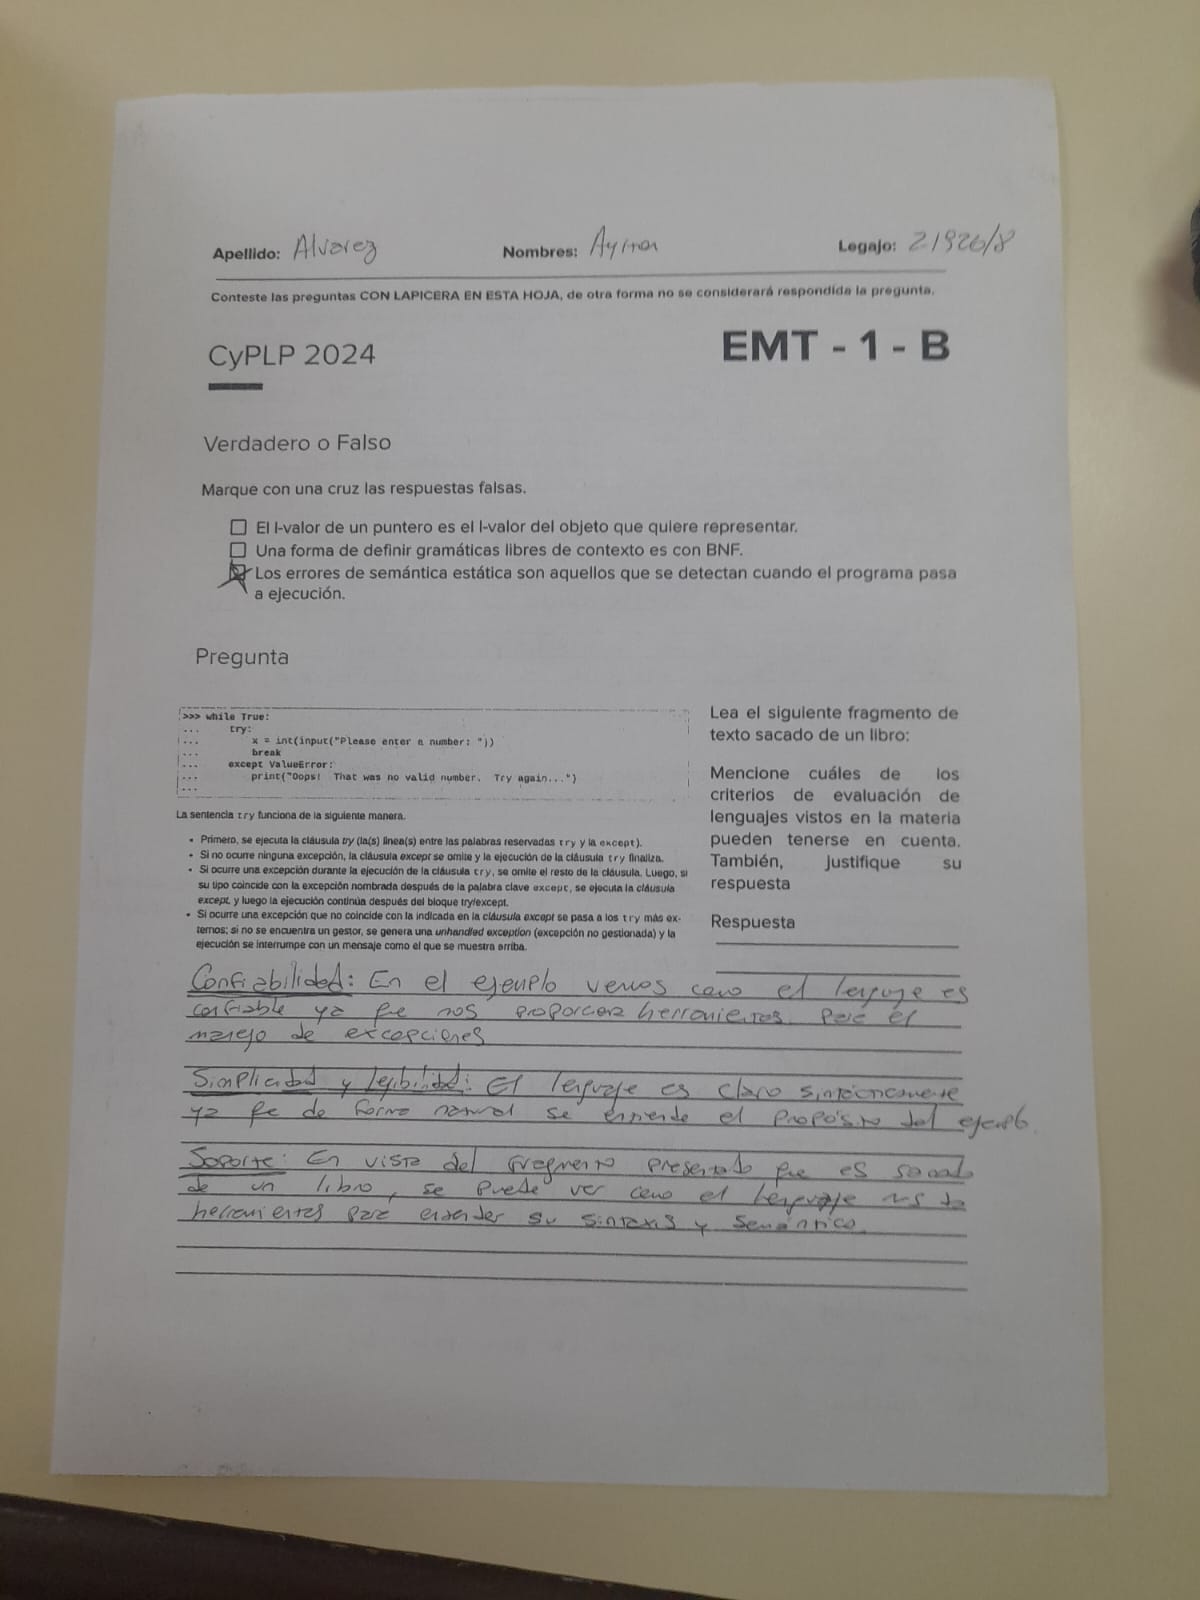 Apellido: Alvarez Nombres: Legajo: 21926/8
Conteste las preguntas CON LAPICERA EN ESTA HOJA, de otra forma no se considerará respondida la pregunta.
CyPLP 2024
EMT - 1 - B
Verdadero o Falso
Marque con una cruz las respuestas falsas.
El l-valor de un puntero es el l-valor del objeto que quiere representar.
Una forma de definir gramáticas libres de contexto es con BNF.
Los errores de semántica estática son aquellos que se detectan cuando el programa pasa
a ejecución.
Pregunta
>>> while True:
... try:
... x = int(input("Please enter a number: "))
... break
... except ValueError:
... print("Oops! That was no valid number. Try again...")
...
La sentencia try funciona de la siguiente manera.
• Primero, se ejecuta la cláusula try (la(s) línea(s) entre las palabras reservadas try y la except).
• Si no ocurre ninguna excepción, la cláusula except se omite y la ejecución de la cláusula try finaliza.
• Si ocurre una excepción durante la ejecución de la cláusula try, se omite el resto de la cláusula. Luego, si
su tipo coincide con la excepción nombrada después de la palabra clave except, se ejecuta la cláusula
except, y luego la ejecución continúa después del bloque try/except.
• Si ocurre una excepción que no coincide con la indicada en la cláusula except se pasa a los try más ex-
ternos; si no se encuentra un gestor, se genera una unhandled exception (excepción no gestionada) y la
ejecución se interrumpe con un mensaje como el que se muestra arriba.
Lea el siguiente fragmento de
texto sacado de un libro:
Mencione cuáles de los
criterios de evaluación de
lenguajes vistos en la materia
pueden tenerse en cuenta.
También, justifique su
respuesta
Respuesta
Confiabilidad: En el ejemplo vemos como el lenguaje es
confiable ya que nos proporciona herramientas para el
manejo de excepciones
Simplicidad y legibilidad: El lenguaje es claro sintácticamente
ya que de forma natural se entiende el propósito del ejemplo.
Soporte: En vista del fragmento presentado que es sacado
de un libro, se puede ver como el lenguaje nos da
herramientas para entender su sintaxis y semántica.